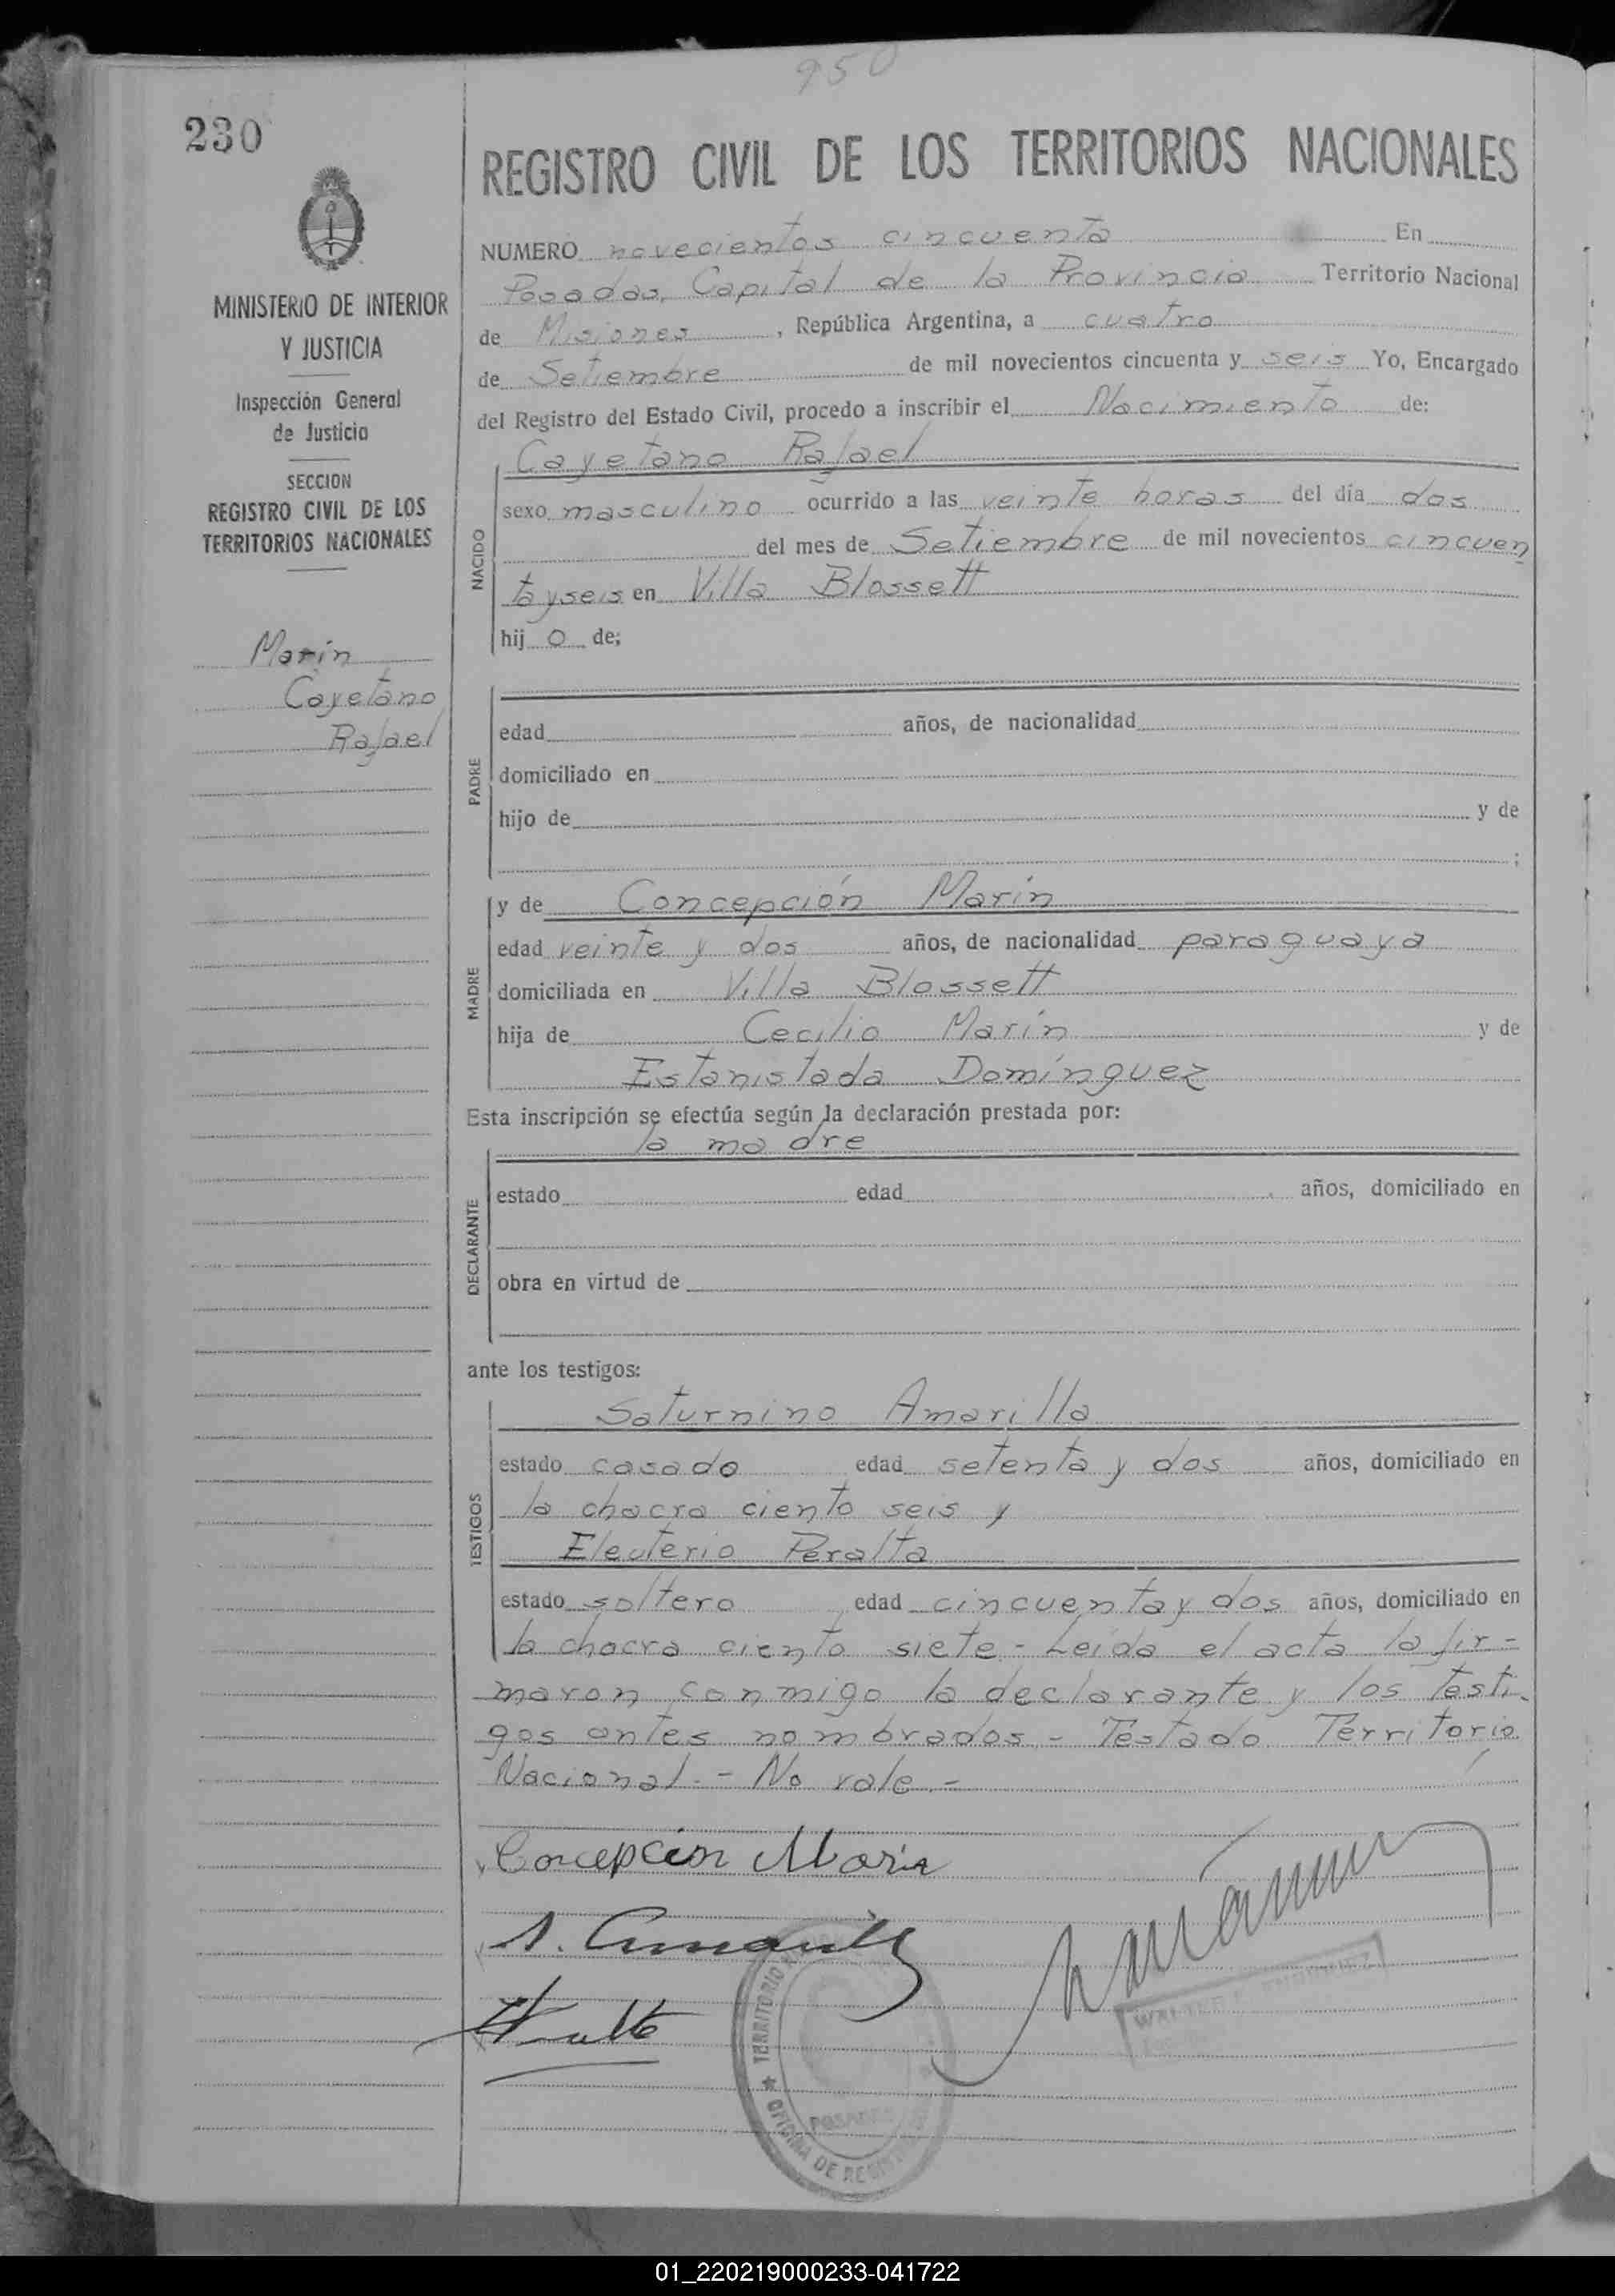 950
230
REGISTRO CIVIL DE LOS TERRITORIOS NACIONALES
MINISTERIO DE INTERIOR
Y JUSTICIA
Inspección General
de Justicia
SECCION
REGISTRO CIVIL DE LOS
TERRITORIOS NACIONALES
Marín
Cayetano
Rafael
NUMERO novecientos cincuenta En
Posadas, Capital de la Provincia Territorio Nacional
de Misiones, República Argentina, a cuatro
de Setiembre de mil novecientos cincuenta y seis Yo, Encargado
del Registro del Estado Civil, procedo a inscribir el Nacimiento de:
NACIDO
Cayetano Rafael
sexo masculino ocurrido a las veinte horas del día dos
del mes de Setiembre de mil novecientos cincuen
tayseis en Villa Blossett
hij o de;
PADRE
edad años, de nacionalidad
domiciliado en
hijo de y de
;
MADRE
y de Concepción Marín
edad veinte y dos años, de nacionalidad paraguaya
domiciliada en Villa Blossett
hija de Cecilio Marín y de
Estanistada Domínguez
Esta inscripción se efectúa según la declaración prestada por:
DECLARANTE
la madre
estado edad años, domiciliado en
obra en virtud de
ante los testigos:
TESTIGOS
Saturnino Amarilla
estado casado edad setenta y dos años, domiciliado en
la chacra ciento seis y
Eleuterio Peralta
estado soltero edad cincuenta y dos años, domiciliado en
la chacra ciento siete - Leída el acta la fir-
maron conmigo la declarante y los testi-
gos antes nombrados - Testado Territorio
Nacional. - No vale. -
Concepción Marín
S. Amarilla
TERRITORIO
POSADAS
OFICINA DE REGISTRO
01_220219000233-041722